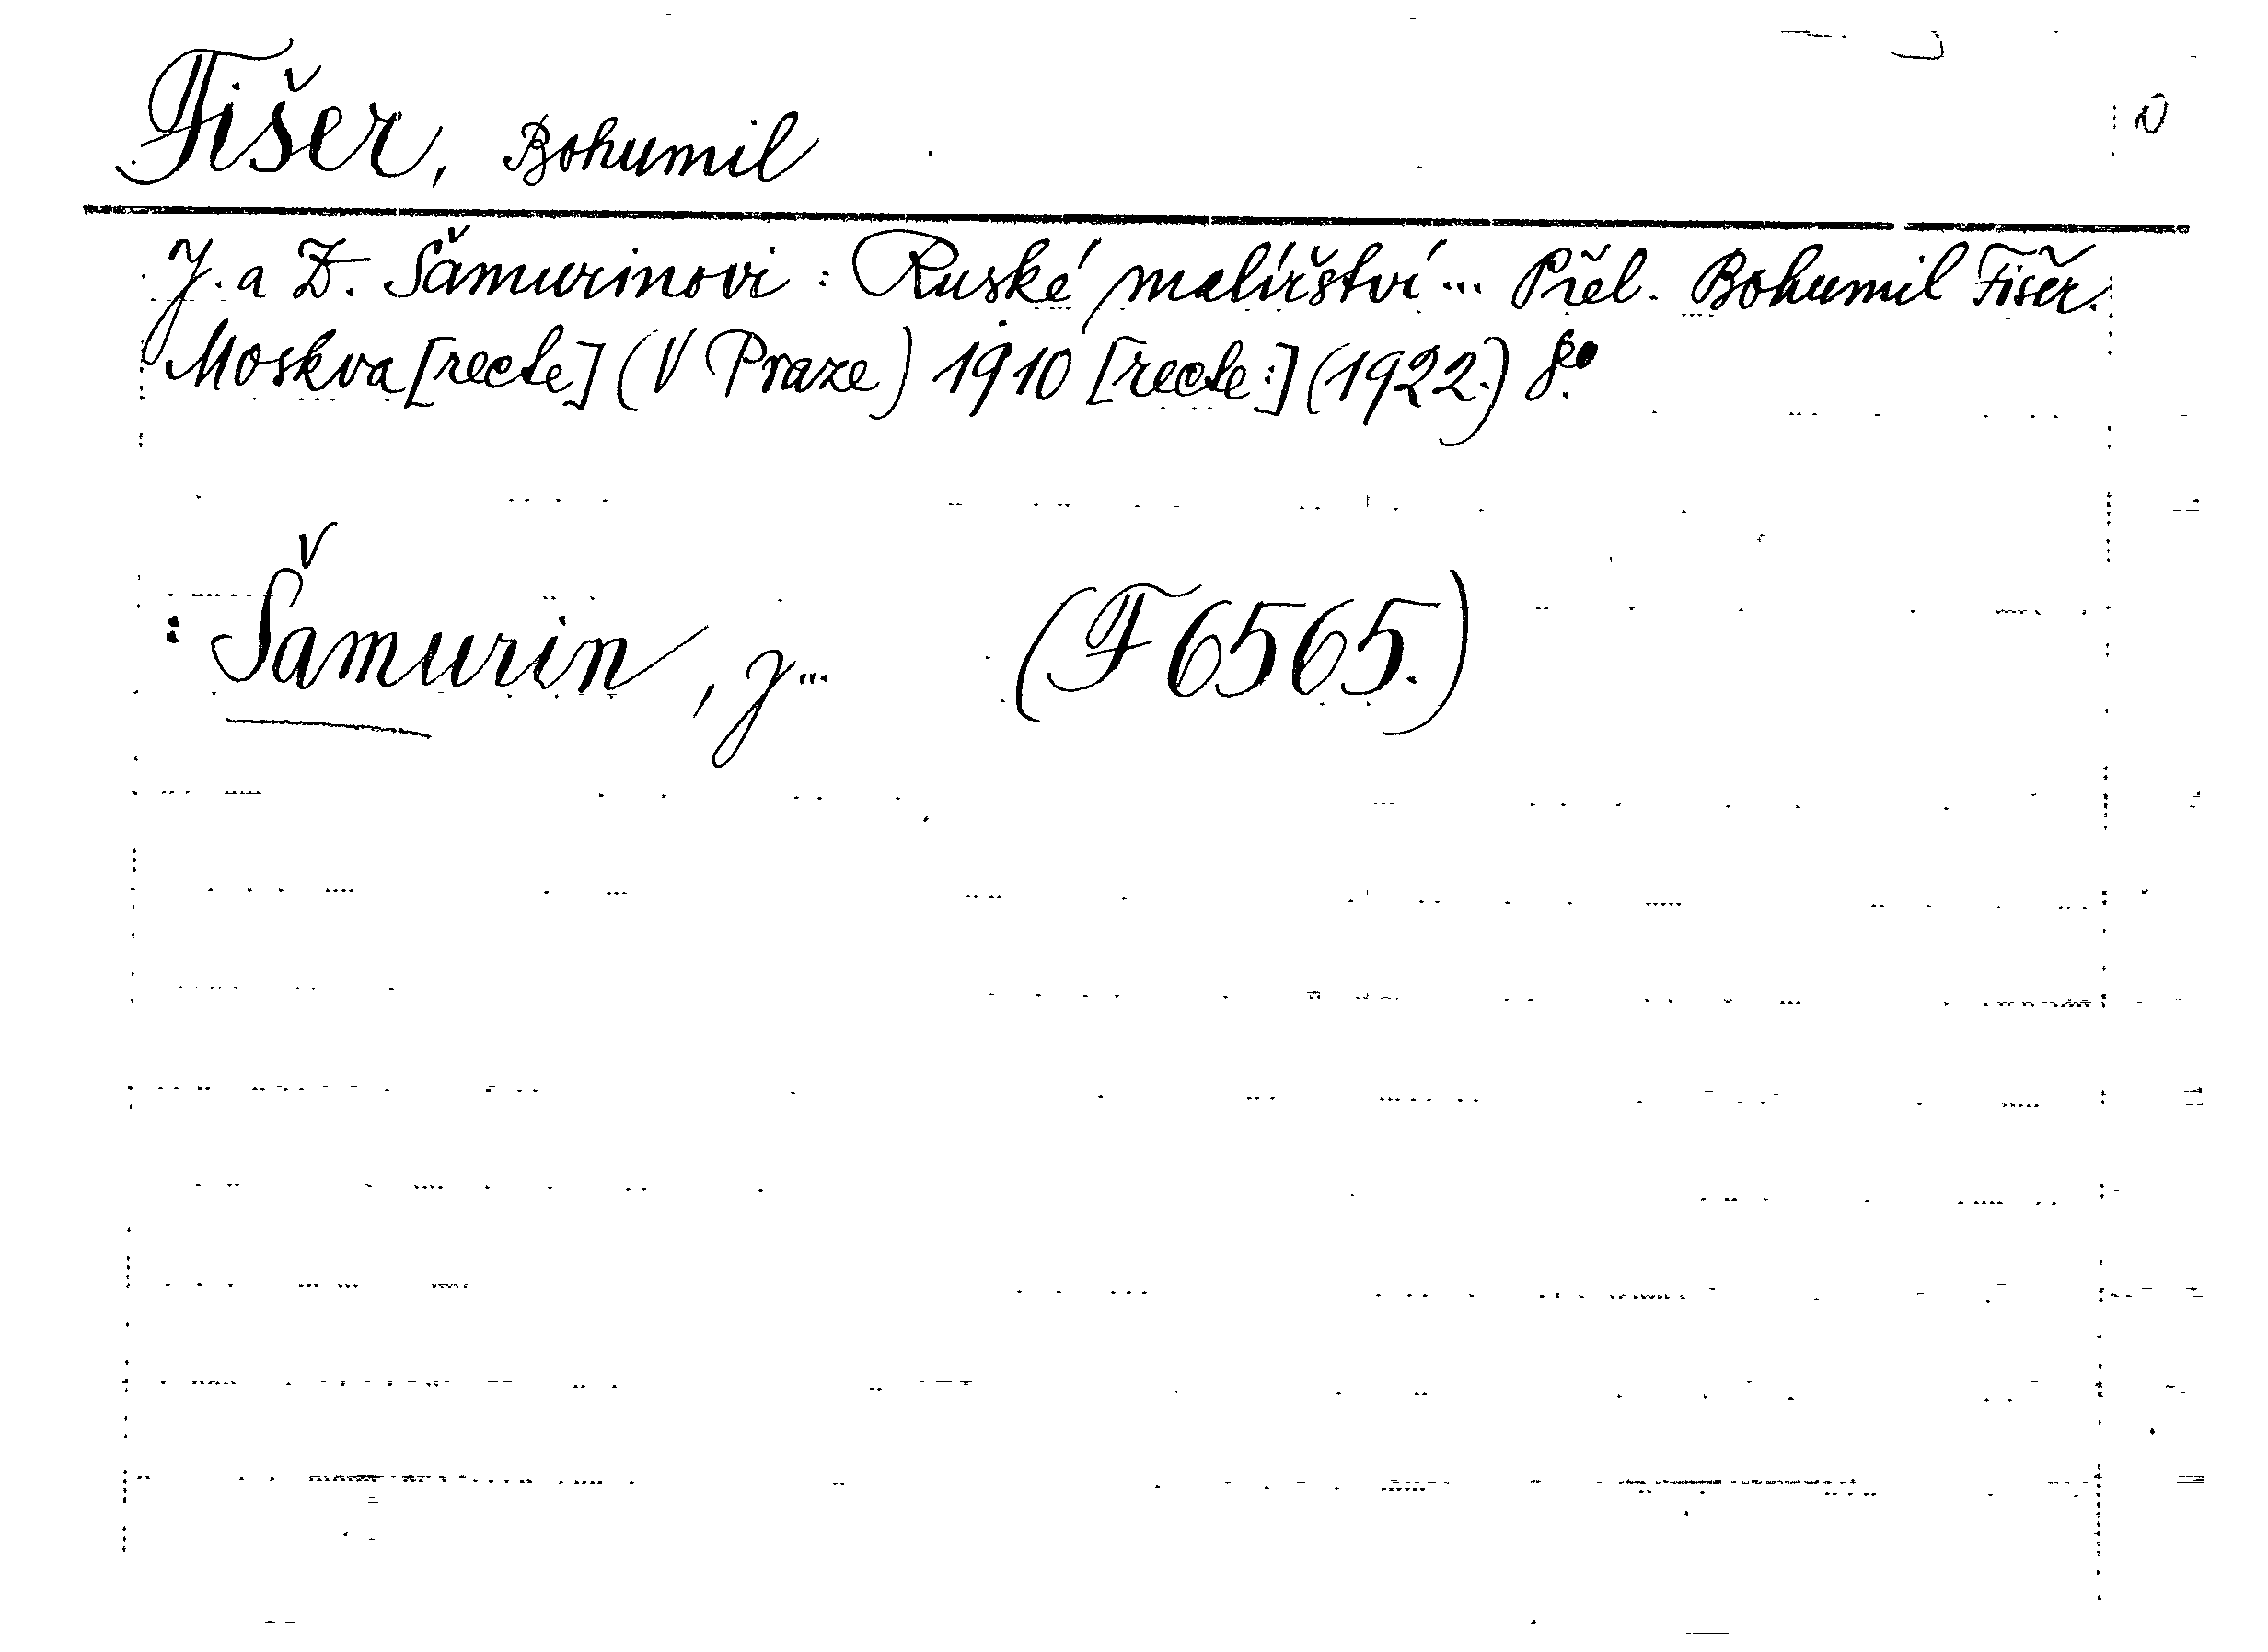 Fišer, Bohumil
J. a Z. Šamurinovi: Ruské malířství... Přel. Bohumil Fišer.
Moskva [recte] (V Praze) 1910 [recte:] (1922.) 8°.
: Šamurin, J... (F 6565.)